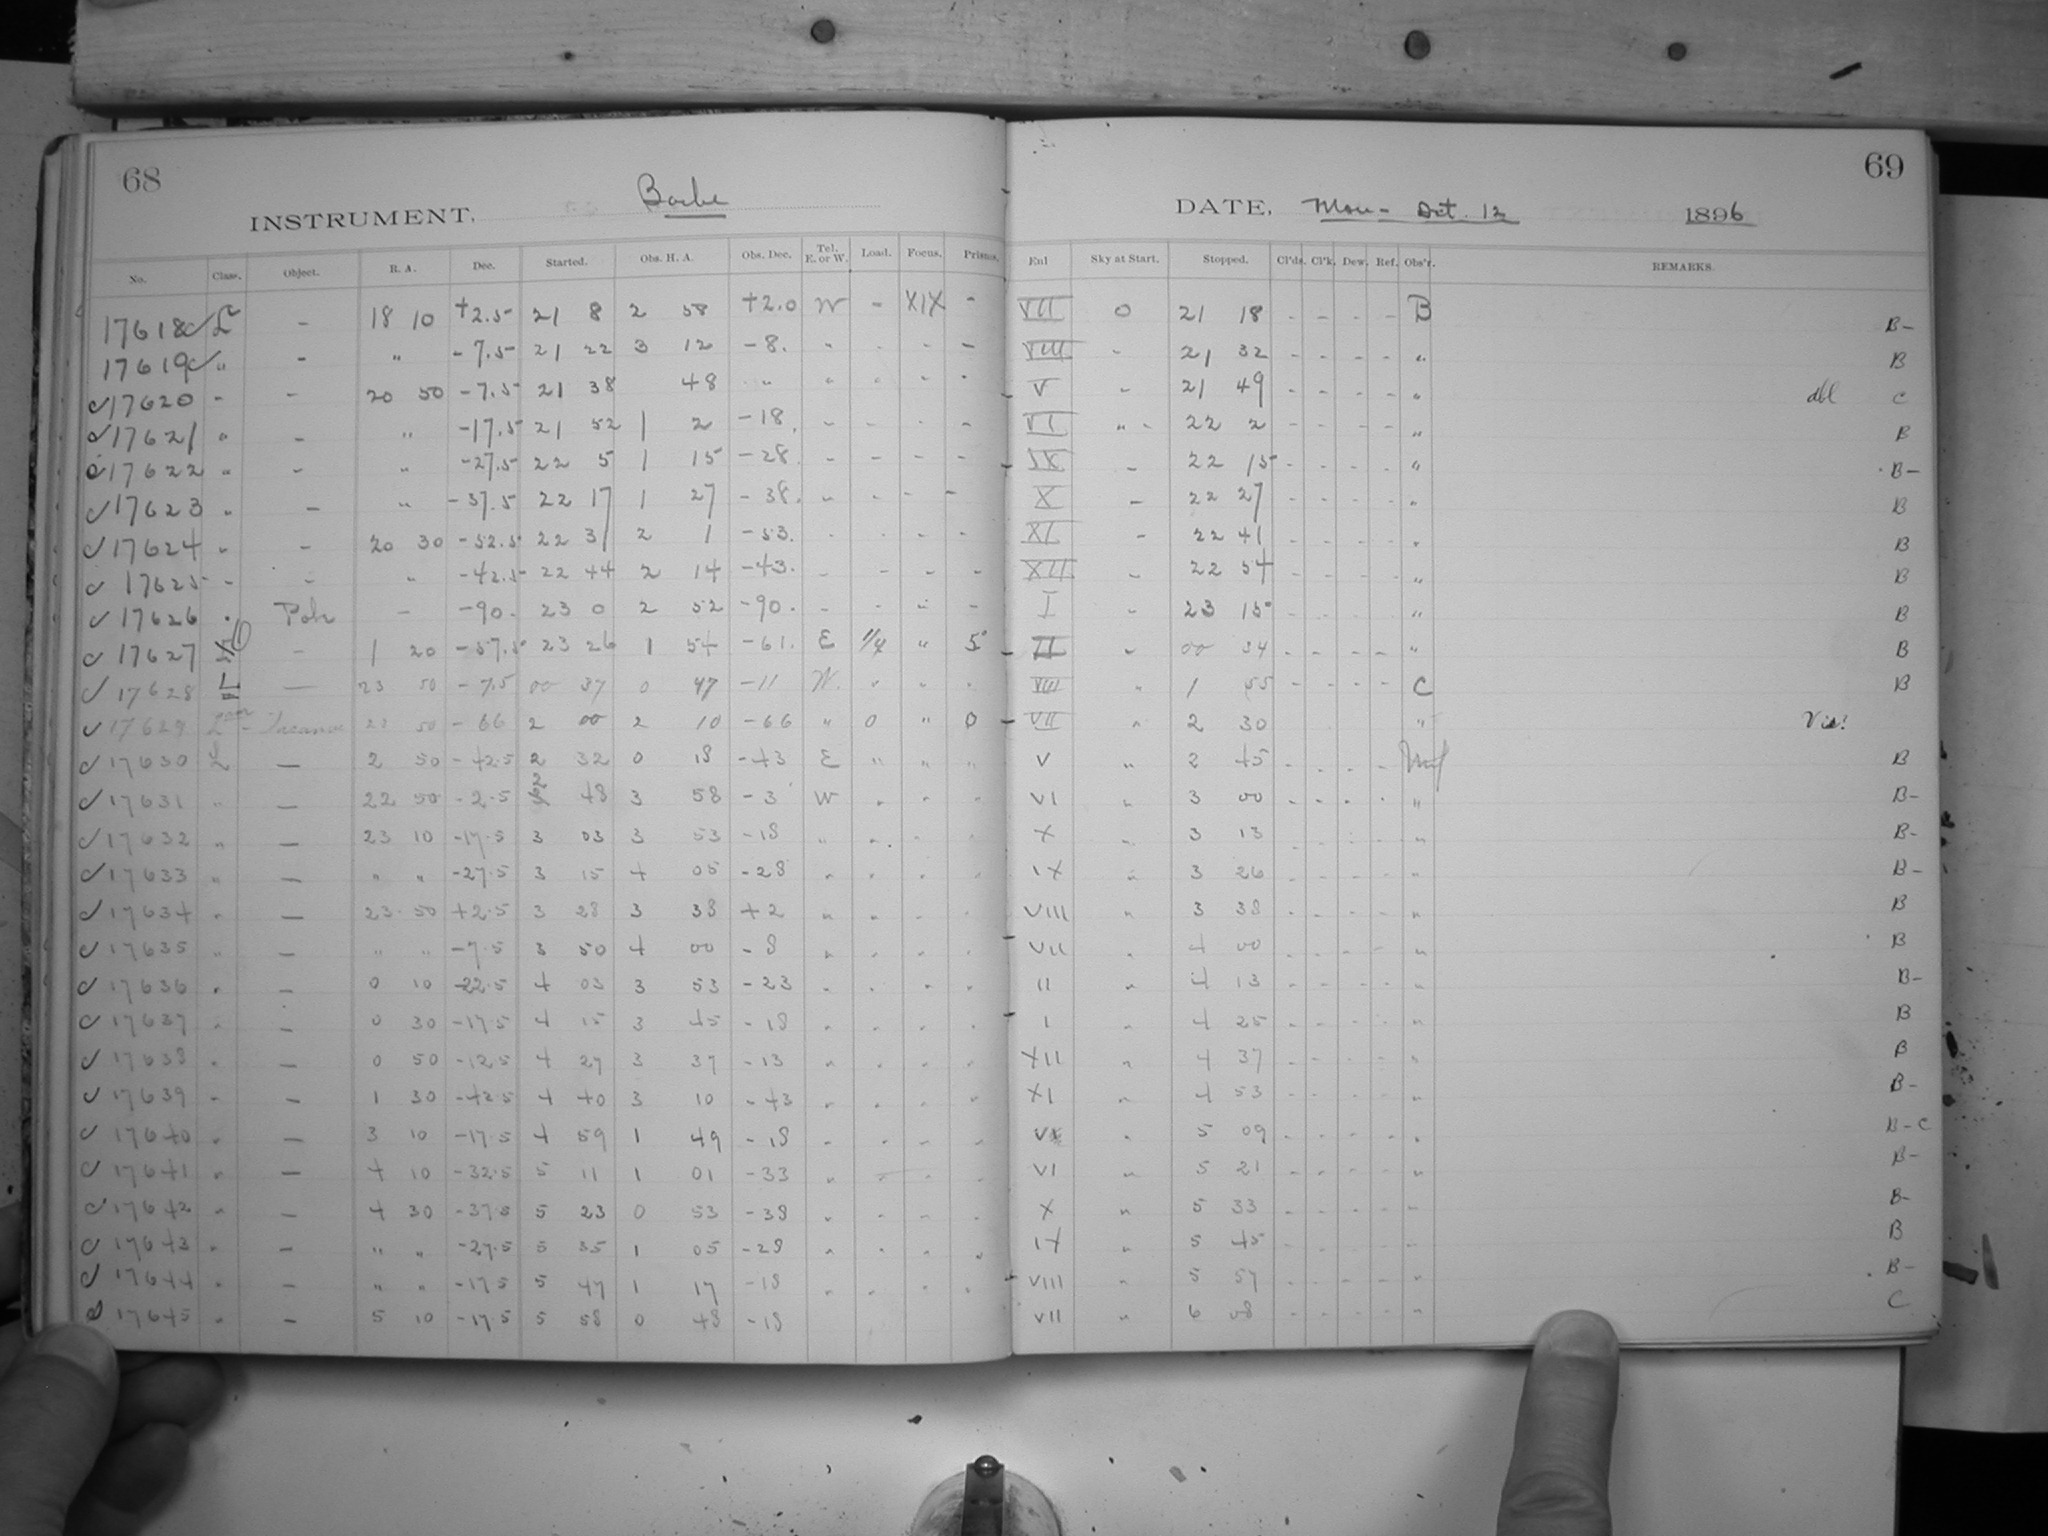 68
INSTRUMENT, Bache
No. Class. Object. R. A. Dec. Started. Obs. H. A. Obs. Dec. Tel. E. or W. Load. Focus. Prisms.
17618 L - 18 10 +2.5 21 8 2 58 +2.0 W - XIX -
17619 " - " -7.5 21 22 3 12 -8. " - - -
17620 - - 20 50 -7.5 21 38 48 " " - - -
17621 " - " -17.5 21 52 1 2 -18. - - - -
17622 " - " -27.5 22 5 1 15 -28. - - - -
17623 " - " -37.5 22 17 1 27 -38. - - - -
17624 " - 20 30 -52.5 22 31 2 1 -53. - - - -
17625 - - " -42.5 22 44 2 14 -43. - - - -
17626 " Pole - -90. 23 0 2 52 -90. - - - -
17627 - 1 20 -57.5 23 26 1 54 -61. E 1/4 " 5°
17628 - 23 50 -7.5 00 37 0 47 -11 W. " " "
17629 23 50 -66 2 00 2 10 -66 " 0 " 0
17630 L - 2 50 -42.5 2 32 0 18 -43 E " " "
17631 " - 22 50 -2.5 2 48 3 58 -3 W " " "
17632 " - 23 10 -17.5 3 03 3 53 -18 " " " "
17633 " - " " -27.5 3 15 4 05 -28 " " " "
17634 " - 23 50 +2.5 3 28 3 38 +2 " " " "
17635 " - " " -7.5 3 50 4 00 -8 " " " "
17636 " - 0 10 -22.5 4 03 3 53 -23 " " " "
17637 " - 0 30 -17.5 4 15 3 45 -18 " " " "
17638 " - 0 50 -12.5 4 27 3 37 -13 " " " "
17639 " - 1 30 -42.5 4 40 3 10 -43 " " " "
17640 " - 3 10 -17.5 4 59 1 49 -18 " " " "
17641 " - 4 10 -32.5 5 11 1 01 -33 " " " "
17642 " - 4 30 -37.5 5 23 0 53 -38 " " " "
17643 " - " " -27.5 5 35 1 05 -28 " " " "
17644 " - " " -17.5 5 47 1 17 -18 " " " "
17645 " - 5 10 -17.5 5 58 0 48 -18
69
DATE, Mon - Oct. 12 1896
Enl Sky at Start. Stopped. Cl'ds. Cl'k. Dew. Ref. Obs'r. REMARKS.
VII 0 21 18 - - - - B B-
VIII - 21 32 - - - - " B
V " 21 49 - - - - " dbl C
VI " 22 2 - - - - " B
IX - 22 15 - - - - " B-
X - 22 27 - - - - " B
XI - 22 41 - - - - " B
XII - 22 54 - - - - " B
I - 23 15 - - - - " B
II " 00 34 - - - - " B
VIII " 1 55 - - - - C B
VII " 2 30 " Vis!
V " 2 45 - - - - B
VI " 3 00 - - - - " B-
X " 3 13 - - - - " B-
IX " 3 26 - - - - " B-
VIII " 3 38 - - - - " B
VII " 4 00 - - - - " B
II " 4 13 - - - - " B-
I " 4 25 - - - - " B
XII " 4 37 - - - - " B
XI " 4 53 - - - - " B-
V " 5 09 - - - - " B-C
VI " 5 21 - - - - " B-
X " 5 33 - - - - " B-
IX " 5 45 - - - - " B
VIII " 5 57 - - - - " B-
VII " 6 08 - - - - " C